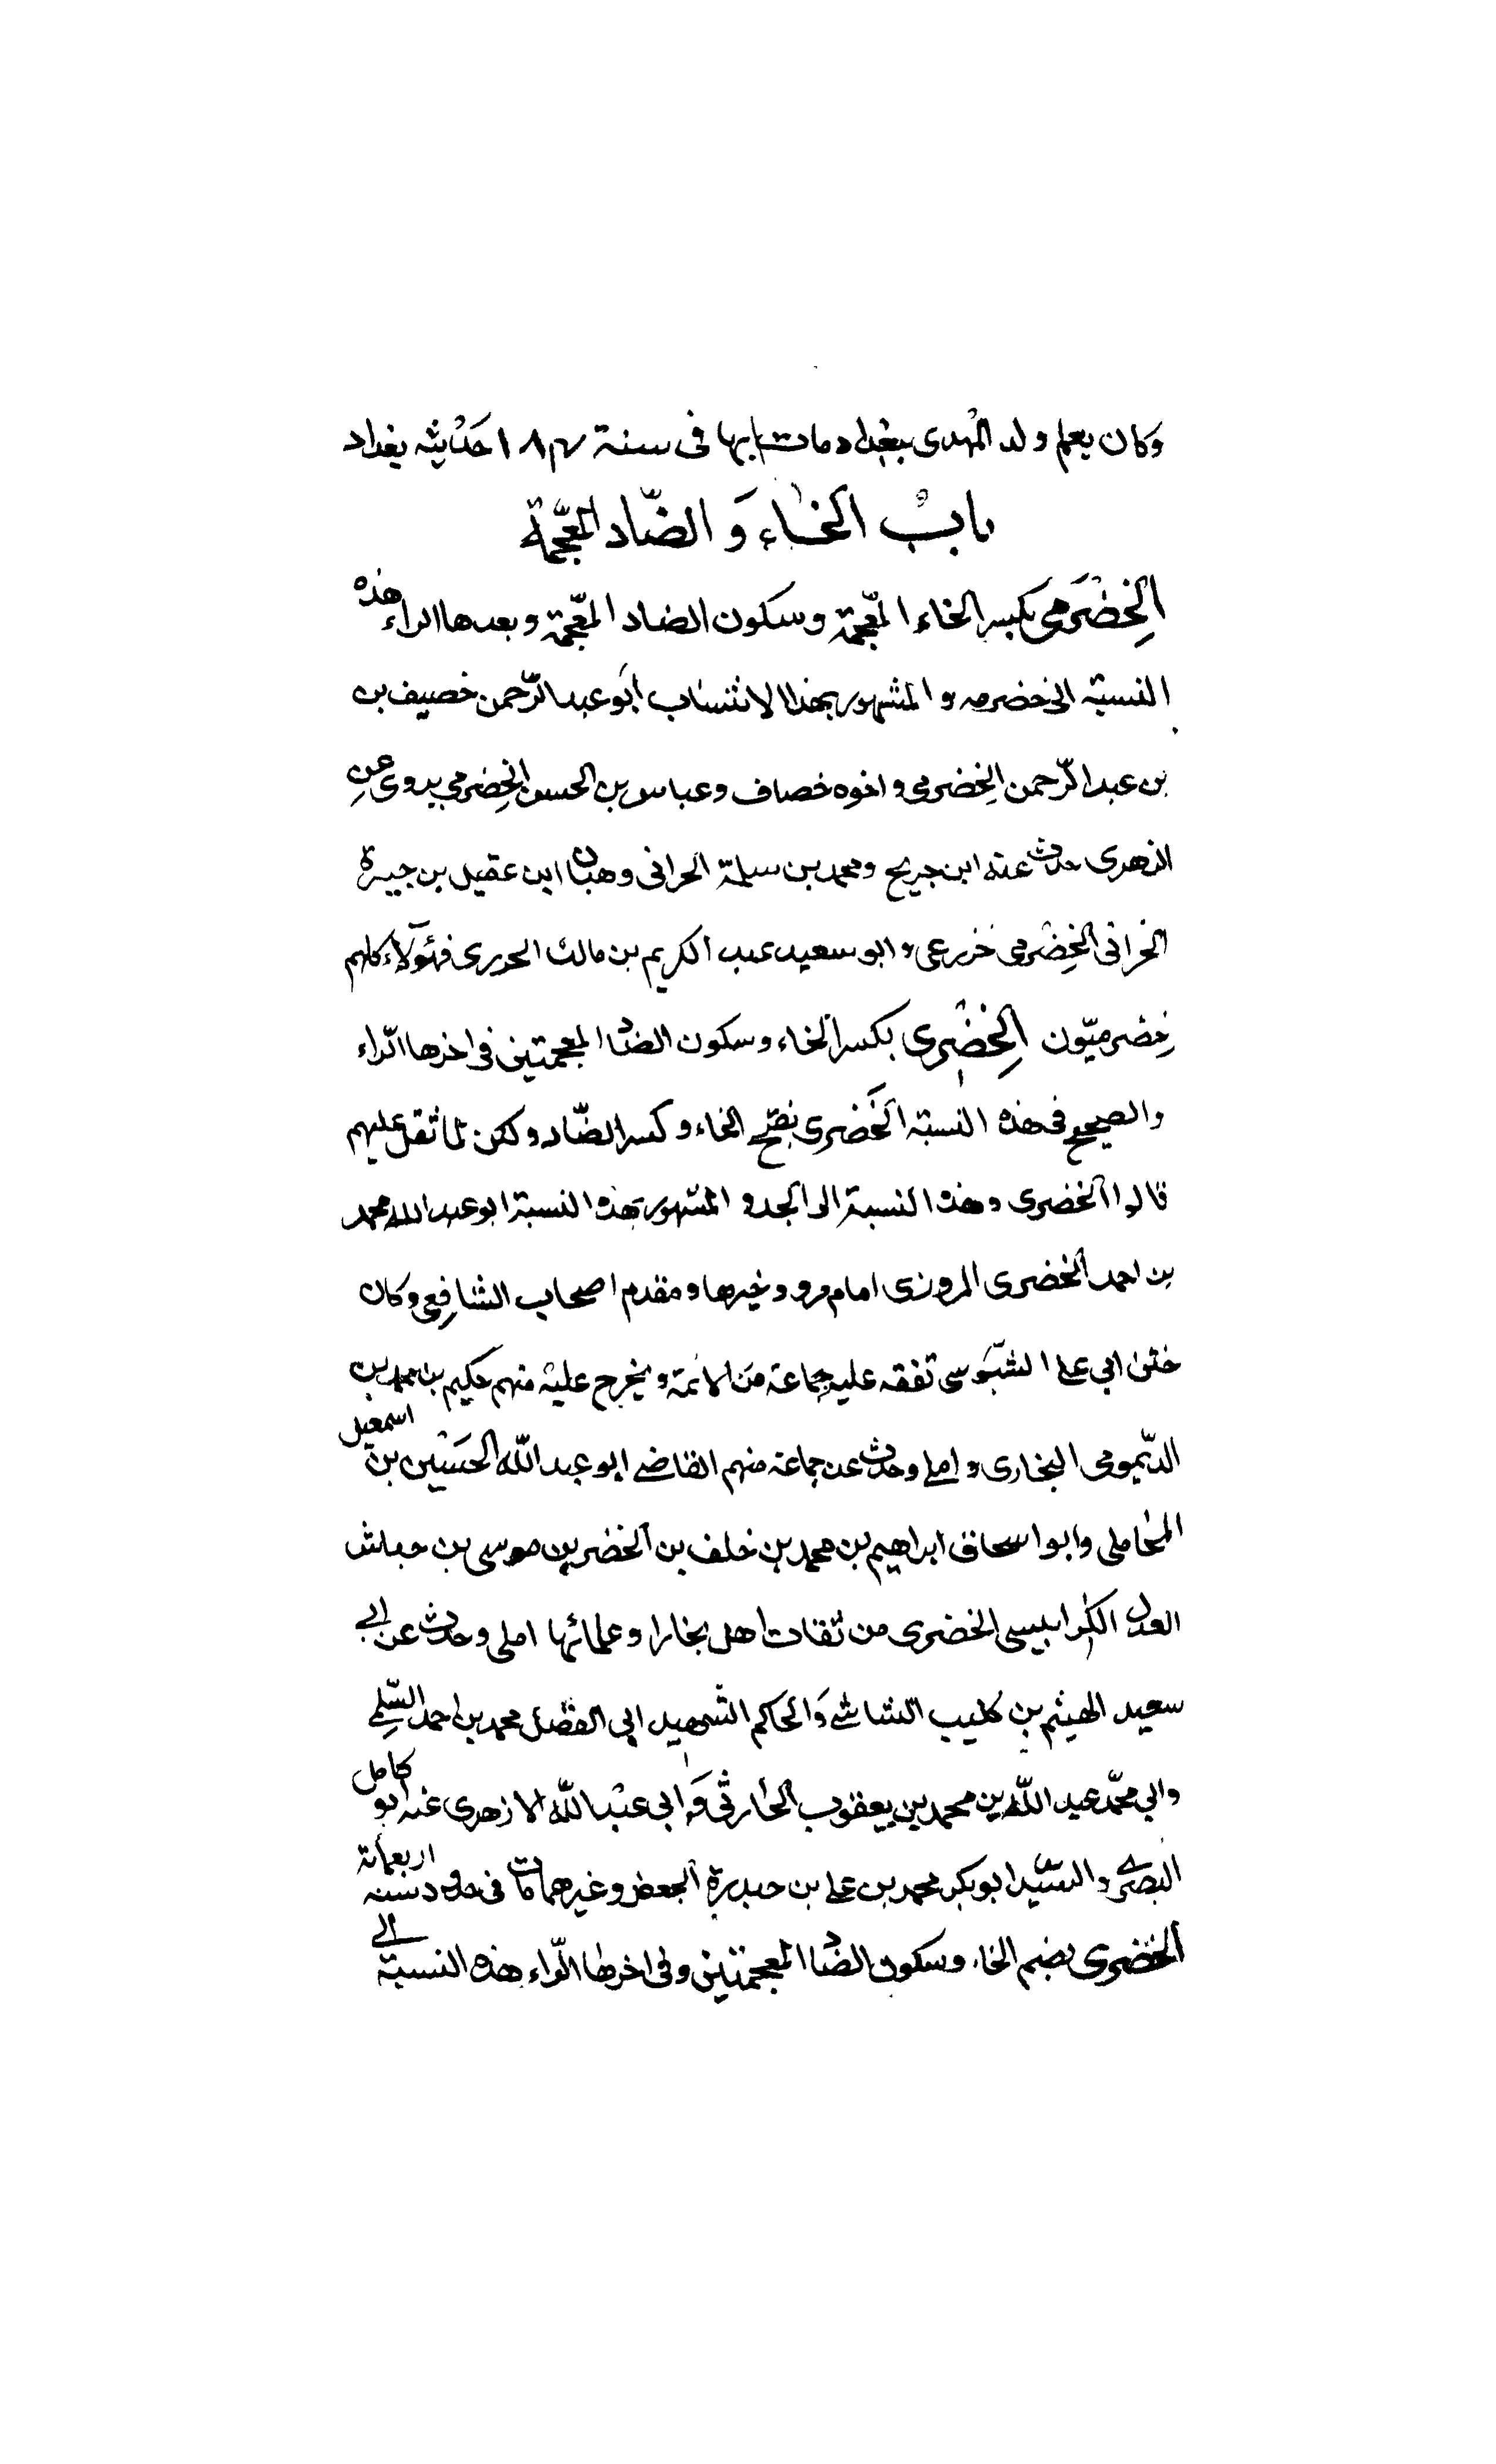 وكان يعلم ولد المهدى ببغداد ومات بها فى سنة ١٨٣ حديثه ببغداد
باب الخاء و الضّاد المعجمة
الخِضرَمى بكسر الخاء المعجمة وسكون الضاد المعجمة وبعدها الراء هذه
النسبة الى خضرمه والمشهور بهذا الانتساب ابو عبد الرّحمن خصيف بن
بن عبد الرّحمن الخِضرمى واخوه خصاف وعباس بن الحسن الخِضرمى يروى عن
الزهرى حدث عنه ابن جريج ومحمد بن سلمة الحرانى وهبان ابن عقيل بن جبيرة
الحرانى الخِضرمى وابو سعيد عبد الكريم بن مالك الجزرى فهؤلاء كلهم
خِضرميّون الخِضْرى بكسر الخاء وسكون الضاد المعجمتين فى اخرها الرّاء
والصحيح فى هذه النسبة الخَضرى بفتح الخاء وكسر الضّاد ولكن لما ثقل عليهم
قالوا الخضرى وهذه النسبة الى الجد والمشهور بهذه النسبة ابو عبد الله محمد
بن احمد الخضرى المروزى امام مرو وغيرها ومقدم اصحاب الشافعى وكان
ختن ابى على الشبّوسى تفقه عليه جماعة من الائمة ويخرج عليه منهم حكيم بن محمد بن
الديمومى البخارى واملى وحدث عن جماعة منهم القاضى ابو عبد الله الحسين بن اسمعيل
المحاملى وابو اسحاق ابراهيم بن محمد بن خلف بن الخضر بن موسى بن حباش
العدل الكرابيسى الخضرى من ثقات اهل بخارا وعلمائها املى وحدث عن ابى
سعيد الهيثم بن كليب الشاشى والحاكم الشهيد ابى الفضل محمد بن احمد السّلمى
وابى محمّد عبد اللّه بن محمد بن يعقوب الحارثى وابى عبد اللّه الازهرى عنه ابو كامل
البصرى والسيّد ابو بكر محمد بن على بن حيدرة الجعفرى وغيرهما مات فى حدود سنة اربعمائة
الخضرى بضم الخاء وسكون الضاد المعجمتين وفى اخرها الرّاء هذه النسبة الى